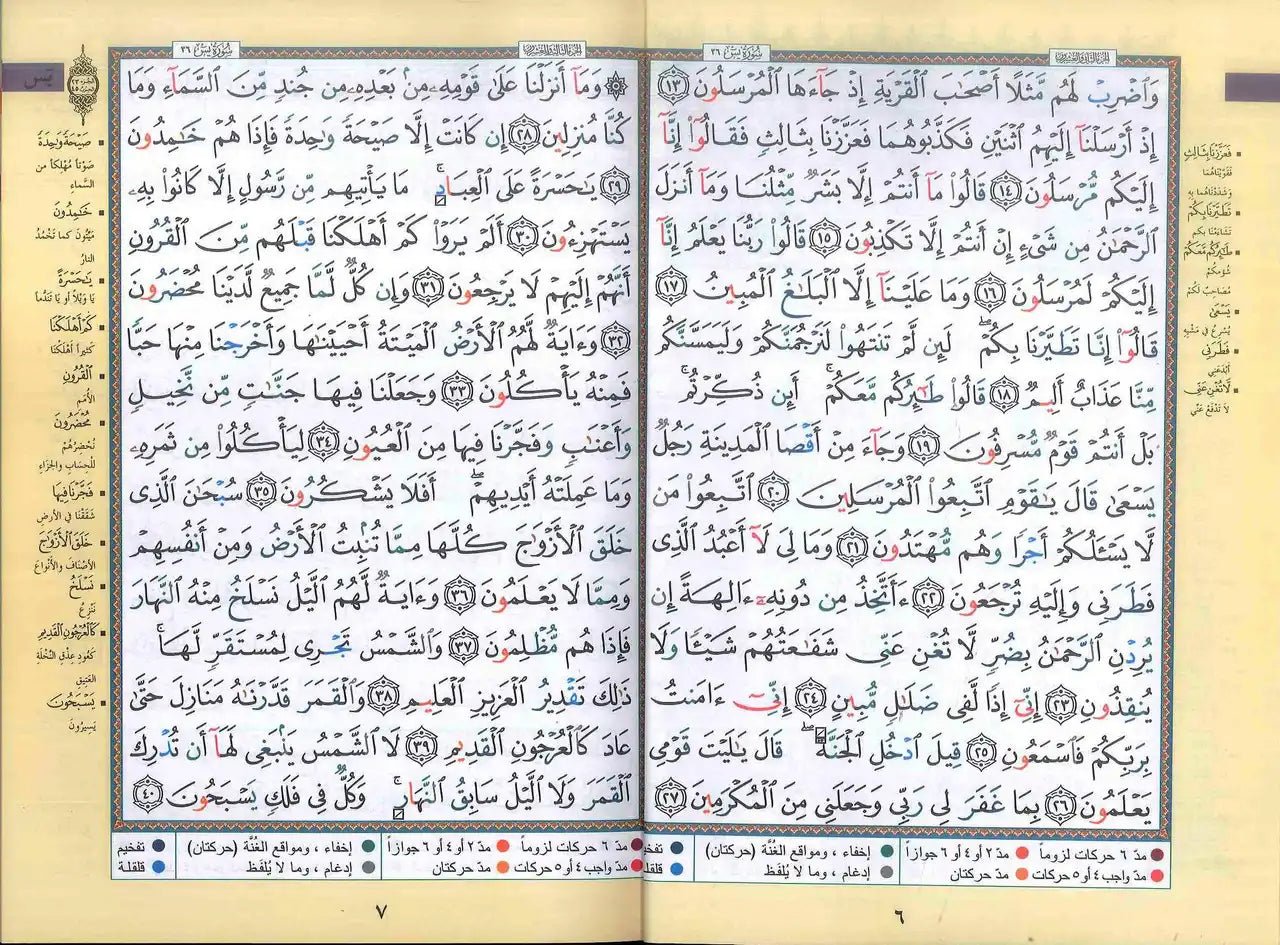 سُورَةُ يسٓ ٣٦
الجزء الثاني والعشرون
وَٱضۡرِبۡ لَهُم مَّثَلًا أَصۡحَٰبَ ٱلۡقَرۡيَةِ إِذۡ جَآءَهَا ٱلۡمُرۡسَلُونَ ١٣
إِذۡ أَرۡسَلۡنَآ إِلَيۡهِمُ ٱثۡنَيۡنِ فَكَذَّبُوهُمَا فَعَزَّزۡنَا بِثَالِثٖ فَقَالُوٓاْ إِنَّآ
إِلَيۡكُم مُّرۡسَلُونَ ١٤ قَالُواْ مَآ أَنتُمۡ إِلَّا بَشَرٞ مِّثۡلُنَا وَمَآ أَنزَلَ
ٱلرَّحۡمَٰنُ مِن شَيۡءٍ إِنۡ أَنتُمۡ إِلَّا تَكۡذِبُونَ ١٥ قَالُواْ رَبُّنَا يَعۡلَمُ إِنَّآ
إِلَيۡكُمۡ لَمُرۡسَلُونَ ١٦ وَمَا عَلَيۡنَآ إِلَّا ٱلۡبَلَٰغُ ٱلۡمُبِينُ ١٧
قَالُوٓاْ إِنَّا تَطَيَّرۡنَا بِكُمۡۖ لَئِن لَّمۡ تَنتَهُواْ لَنَرۡجُمَنَّكُمۡ وَلَيَمَسَّنَّكُم
مِّنَّا عَذَابٌ أَلِيمٞ ١٨ قَالُواْ طَٰٓئِرُكُم مَّعَكُمۡ أَئِن ذُكِّرۡتُمۚ
بَلۡ أَنتُمۡ قَوۡمٞ مُّسۡرِفُونَ ١٩ وَجَآءَ مِنۡ أَقۡصَا ٱلۡمَدِينَةِ رَجُلٞ
يَسۡعَىٰ قَالَ يَٰقَوۡمِ ٱتَّبِعُواْ ٱلۡمُرۡسَلِينَ ٢٠ ٱتَّبِعُواْ مَن
لَّا يَسۡـَٔلُكُمۡ أَجۡرٗا وَهُم مُّهۡتَدُونَ ٢١ وَمَا لِيَ لَآ أَعۡبُدُ ٱلَّذِي
فَطَرَنِي وَإِلَيۡهِ تُرۡجَعُونَ ٢٢ ءَأَتَّخِذُ مِن دُونِهِۦٓ ءَالِهَةً إِن
يُرِدۡنِ ٱلرَّحۡمَٰنُ بِضُرّٖ لَّا تُغۡنِ عَنِّي شَفَٰعَتُهُمۡ شَيۡـٔٗا وَلَا
يُنقِذُونِ ٢٣ إِنِّيٓ إِذٗا لَّفِي ضَلَٰلٖ مُّبِينٍ ٢٤ إِنِّيٓ ءَامَنتُ
بِرَبِّكُمۡ فَٱسۡمَعُونِ ٢٥ قِيلَ ٱدۡخُلِ ٱلۡجَنَّةَۖ قَالَ يَٰلَيۡتَ قَوۡمِي
يَعۡلَمُونَ ٢٦ بِمَا غَفَرَ لِي رَبِّي وَجَعَلَنِي مِنَ ٱلۡمُكۡرَمِينَ ٢٧
فَعَزَّزْنَا بِثَالِثٍ
فَقَوَّيْنَاهُمَا
وَشَدَدْنَاهُمَا بِهِ
تَطَيَّرْنَا بِكُمْ
تَشَاءَمْنَا بكم
طَائِرُكُم مَّعَكُمْ
شُؤمكُمْ
مُصَاحِبٌ لَكُمْ
يَسْعَىٰ
يُسْرِعُ في مَشْيِهِ
فَطَرَنِي
أَبْدَعَنِي
لَّا تُغْنِ عَنِّي
لاَ تَدْفَعُ عَنِّي
مدّ ٦ حركات لزوماً
مدّ ٢ أو ٤ أو ٦ جوازاً
إخفاء ، ومواقع الغُنَّة (حركتان)
مدّ واجب ٤ أو ٥ حركات
مدّ حركتان
إدغام ، وما لا يُلفَظ
٦
الجزء الثالث والعشرون
سُورَةُ يسٓ ٣٦
يسٓ
وَمَآ أَنزَلۡنَا عَلَىٰ قَوۡمِهِۦ مِنۢ بَعۡدِهِۦ مِن جُندٖ مِّنَ ٱلسَّمَآءِ وَمَا
كُنَّا مُنزِلِينَ ٢٨ إِن كَانَتۡ إِلَّا صَيۡحَةٗ وَٰحِدَةٗ فَإِذَا هُمۡ خَٰمِدُونَ
٢٩ يَٰحَسۡرَةً عَلَى ٱلۡعِبَادِۚ مَا يَأۡتِيهِم مِّن رَّسُولٍ إِلَّا كَانُواْ بِهِۦ
يَسۡتَهۡزِءُونَ ٣٠ أَلَمۡ يَرَوۡاْ كَمۡ أَهۡلَكۡنَا قَبۡلَهُم مِّنَ ٱلۡقُرُونِ
أَنَّهُمۡ إِلَيۡهِمۡ لَا يَرۡجِعُونَ ٣١ وَإِن كُلّٞ لَّمَّا جَمِيعٞ لَّدَيۡنَا مُحۡضَرُونَ
٣٢ وَءَايَةٞ لَّهُمُ ٱلۡأَرۡضُ ٱلۡمَيۡتَةُ أَحۡيَيۡنَٰهَا وَأَخۡرَجۡنَا مِنۡهَا حَبّٗا
فَمِنۡهُ يَأۡكُلُونَ ٣٣ وَجَعَلۡنَا فِيهَا جَنَّٰتٖ مِّن نَّخِيلٖ
وَأَعۡنَٰبٖ وَفَجَّرۡنَا فِيهَا مِنَ ٱلۡعُيُونِ ٣٤ لِيَأۡكُلُواْ مِن ثَمَرِهِۦ
وَمَا عَمِلَتۡهُ أَيۡدِيهِمۡۖ أَفَلَا يَشۡكُرُونَ ٣٥ سُبۡحَٰنَ ٱلَّذِي
خَلَقَ ٱلۡأَزۡوَٰجَ كُلَّهَا مِمَّا تُنۢبِتُ ٱلۡأَرۡضُ وَمِنۡ أَنفُسِهِمۡ
وَمِمَّا لَا يَعۡلَمُونَ ٣٦ وَءَايَةٞ لَّهُمُ ٱلَّيۡلُ نَسۡلَخُ مِنۡهُ ٱلنَّهَارَ
فَإِذَا هُم مُّظۡلِمُونَ ٣٧ وَٱلشَّمۡسُ تَجۡرِي لِمُسۡتَقَرّٖ لَّهَاۚ
ذَٰلِكَ تَقۡدِيرُ ٱلۡعَزِيزِ ٱلۡعَلِيمِ ٣٨ وَٱلۡقَمَرَ قَدَّرۡنَٰهُ مَنَازِلَ حَتَّىٰ
عَادَ كَٱلۡعُرۡجُونِ ٱلۡقَدِيمِ ٣٩ لَا ٱلشَّمۡسُ يَنۢبَغِي لَهَآ أَن تُدۡرِكَ
ٱلۡقَمَرَ وَلَا ٱلَّيۡلُ سَابِقُ ٱلنَّهَارِۚ وَكُلّٞ فِي فَلَكٖ يَسۡبَحُونَ ٤٠
صَيْحَةً وَاحِدَةً
صَوْتاً مُهْلِكاً من
السَّماء
خَامِدُونَ
مَيِّتُونَ كما تَخْمُدُ
النارُ
يَا حَسْرَةً
يَا وَيْلاً أو يَا تَنَدُّماً
كَمْ أَهْلَكْنَا
كثيراً أهْلَكْنَا
الْقُرُونِ
الأُمَم
مُحْضَرُونَ
نُحْضِرُهُمْ
للْحِسَابِ والجَزَاءِ
فَجَّرْنَا فِيهَا
شَقَقْنَا في الأرضِ
خَلَقَ الْأَزْوَاجَ
الأصْنَافَ والأنْوَاعَ
نَسْلَخُ
نَنْزِعُ
كَالْعُرْجُونِ الْقَدِيمِ
كَعُودِ عِذْقِ النَّخْلَةِ
العَتِيقِ
يَسْبَحُونَ
يَسِيرُونَ
مدّ ٦ حركات لزوماً
مدّ ٢ أو ٤ أو ٦ جوازاً
إخفاء ، ومواقع الغُنَّة (حركتان)
تفخيم
مدّ واجب ٤ أو ٥ حركات
مدّ حركتان
إدغام ، وما لا يُلفَظ
قلقلة
٧